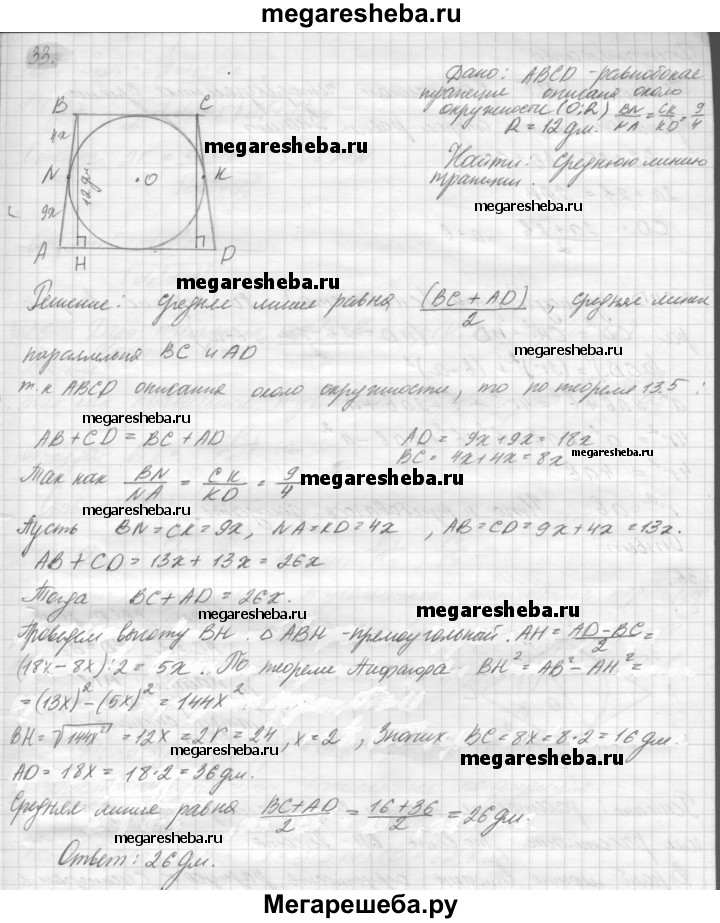 megaresheba.ru
33.
Дано: ABCD - равнобокая
трапеция описана около
окружности (O;R) BN/NA = CK/KD = 9/4
R = 12 дм.
megaresheba.ru
Найти: Среднюю линию
трапеции.
megaresheba.ru
B C
4x
N O K
12 дм.
9x
A D
H
megaresheba.ru
Решение: средняя линия равна (BC + AD)/2, средняя линия
megaresheba.ru
параллельна BC и AD
т.к ABCD описання около окружности, то по теореме 13.5:
megaresheba.ru
AB + CD = BC + AD AD = 9x + 9x = 18x
BC = 4x + 4x = 8x
Так как BN/NA = CK/KD = 9/4 megaresheba.ru
megaresheba.ru
Пусть BN = CK = 9x, NA = KD = 4x, AB = CD = 9x + 4x = 13x.
AB + CD = 13x + 13x = 26x
Тогда BC + AD = 26x.
megaresheba.ru megaresheba.ru
Проведем высоту BH. △ ABH - прямоугольный. AH = (AD - BC)/2 =
(18x - 8x) : 2 = 5x. По теореме Пифагора BH² = AB² - AH² =
megaresheba.ru
= (13x)² - (5x)² = 144x²
BH = √144x² = 12x = 2r = 24, x = 2, Значит BC = 8x = 8·2 = 16 дм.
megaresheba.ru megaresheba.ru
AD = 18x = 18·2 = 36 дм.
Средняя линия равна (BC + AD)/2 = (16 + 36)/2 = 26 дм.
megaresheba.ru megaresheba.ru
Ответ: 26 дм.
Мегарешеба.ру